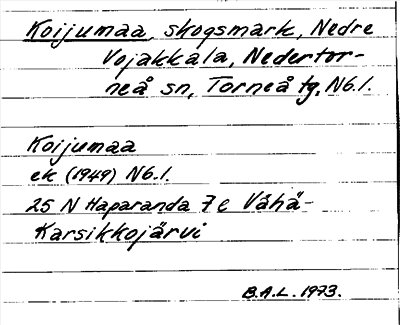 Koijumaa, skogsmark, Nedre
Vojakkala, Nedertor-
neå sn, Torneå tg, Nb.l.
Koijumaa
ek (1949) Nb.l.
25 N Haparanda 7 c Vähä-
Karsikkojärvi
B.A.L. 1973.